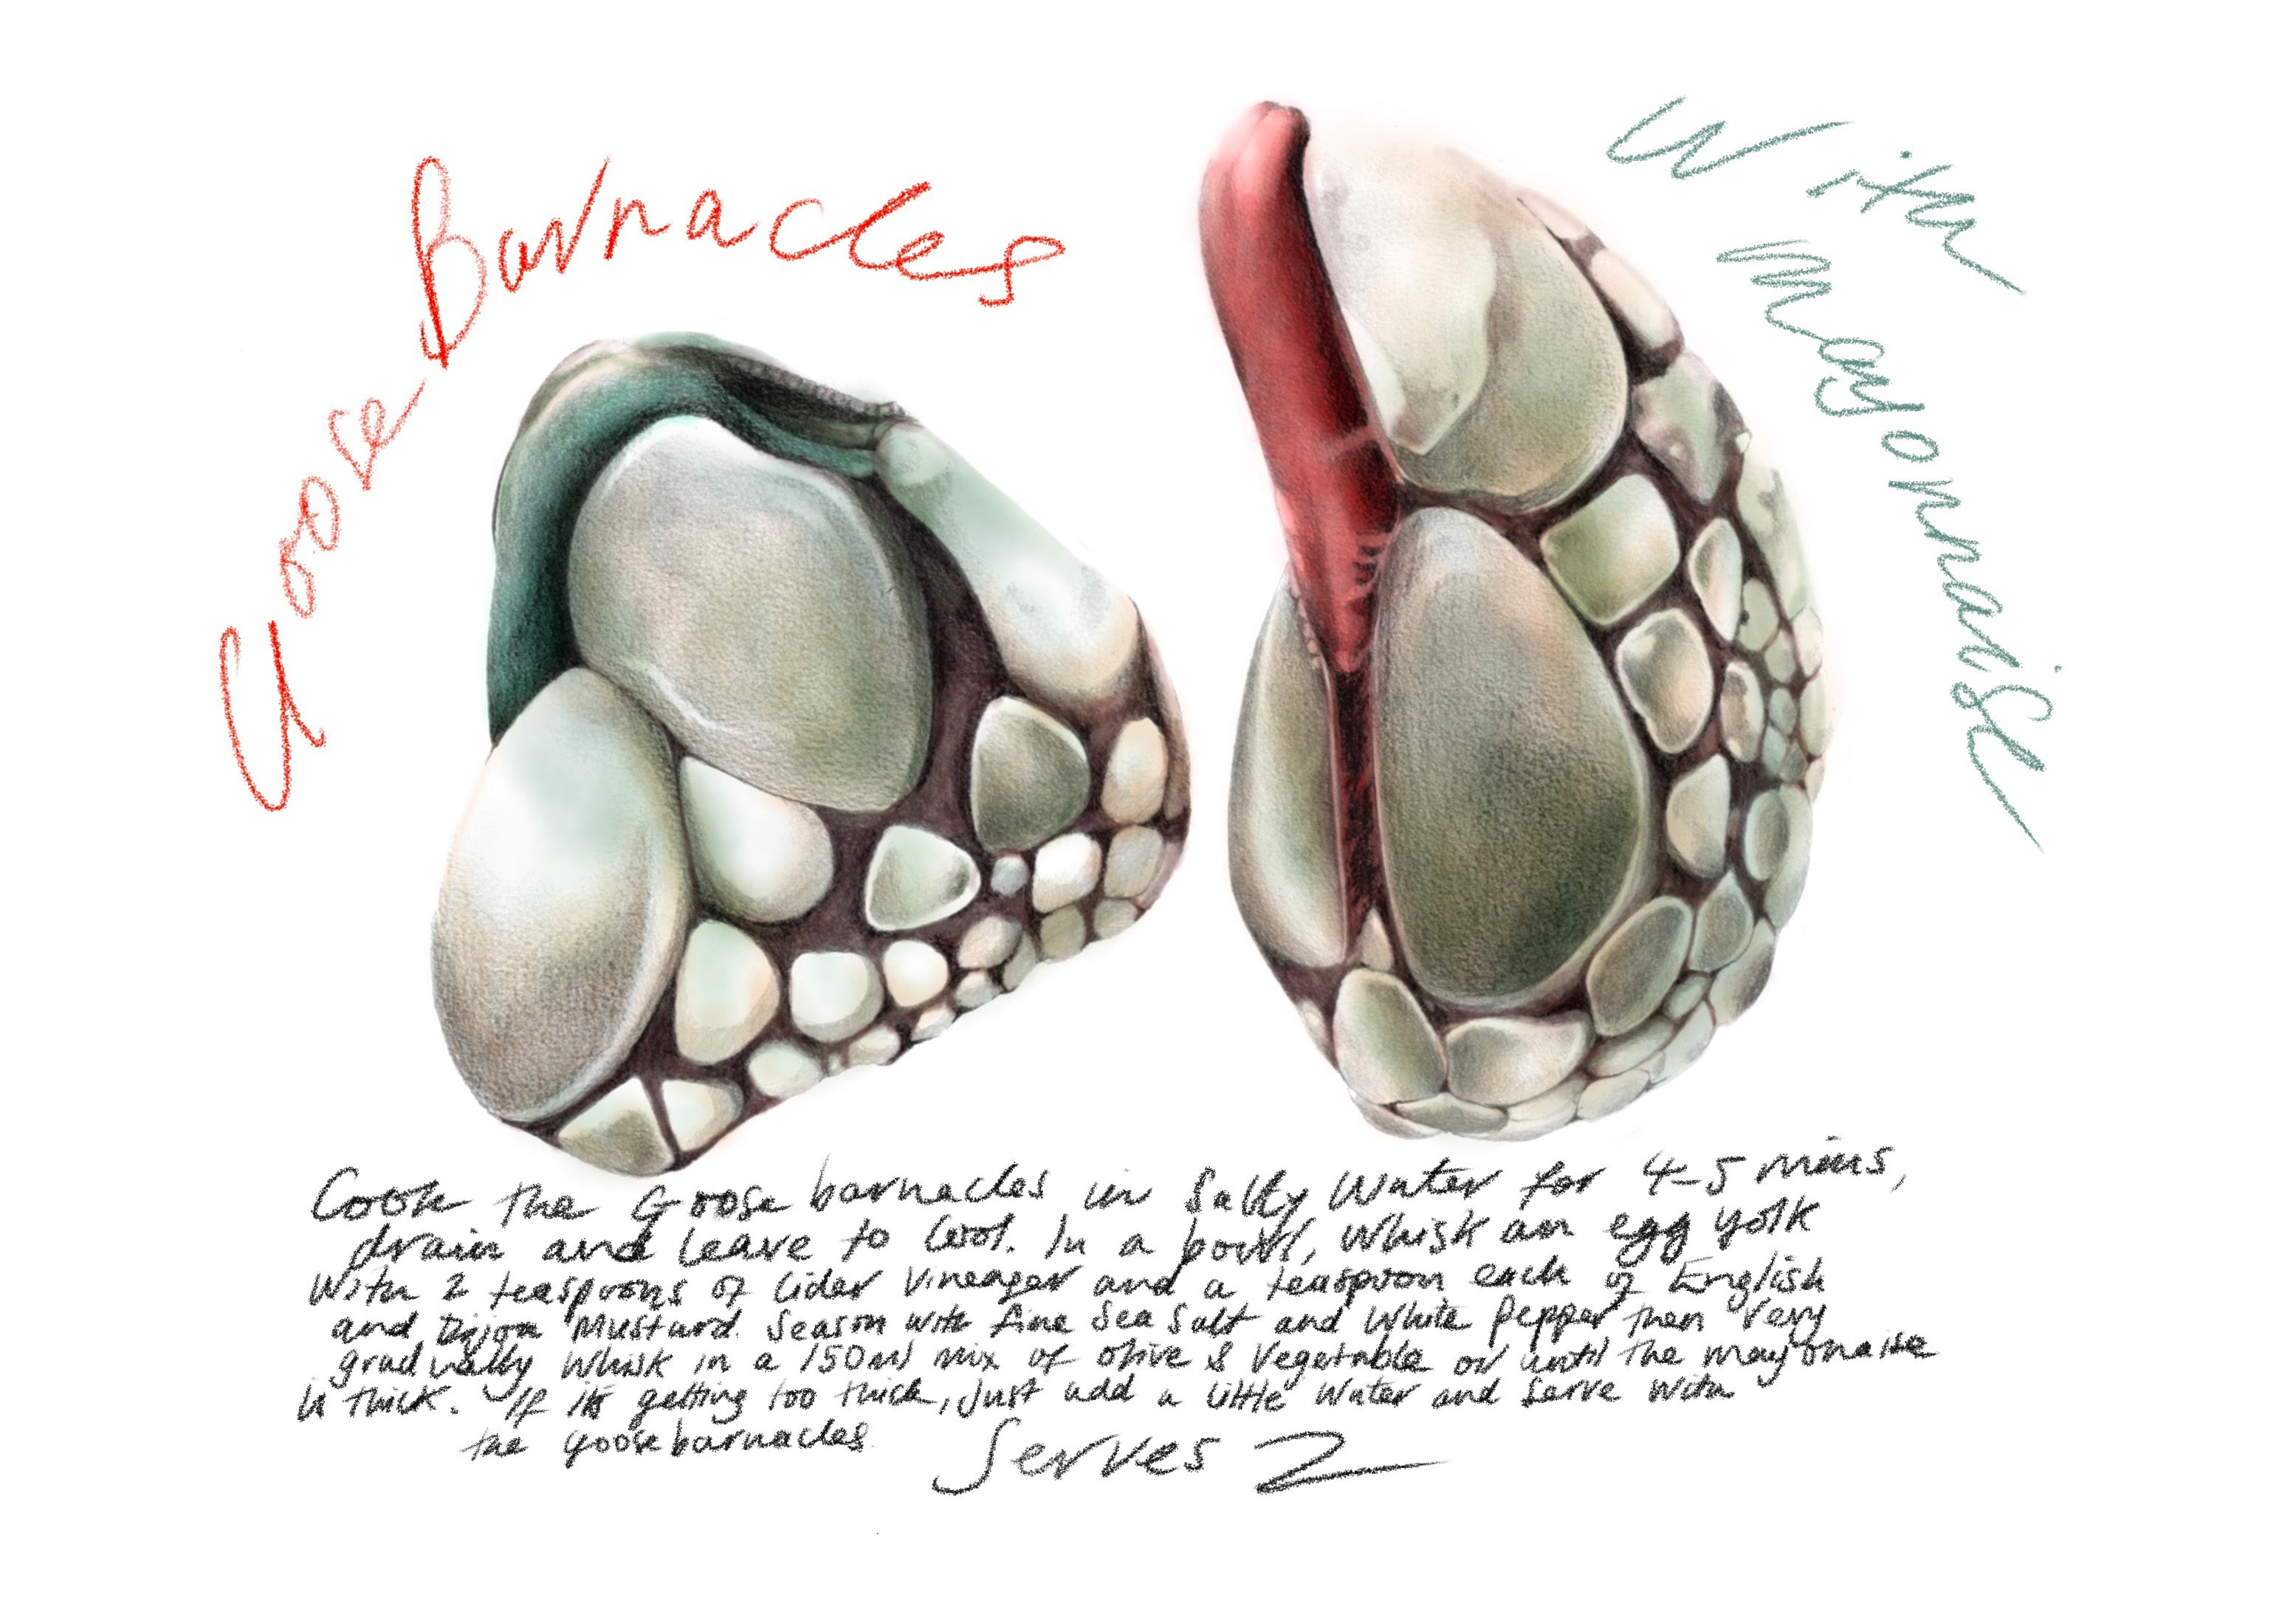 Goose Barnacles
With
Mayonnaise
Cook the Goose barnacles in Salty Water for 4-5 mins,
drain and leave to Cool. In a bowl, Whisk an egg yolk
With 2 teaspoons of Cider Vineager and a teaspoon each of English
and Dijon Mustard. Season with fine Sea Salt and White Pepper then Very
gradually Whisk in a 150ml mix of olive & Vegetable oil until the mayonaise
is thick. If its getting too thick, just add a little Water and Serve With
the goose barnacles.
Serves 2